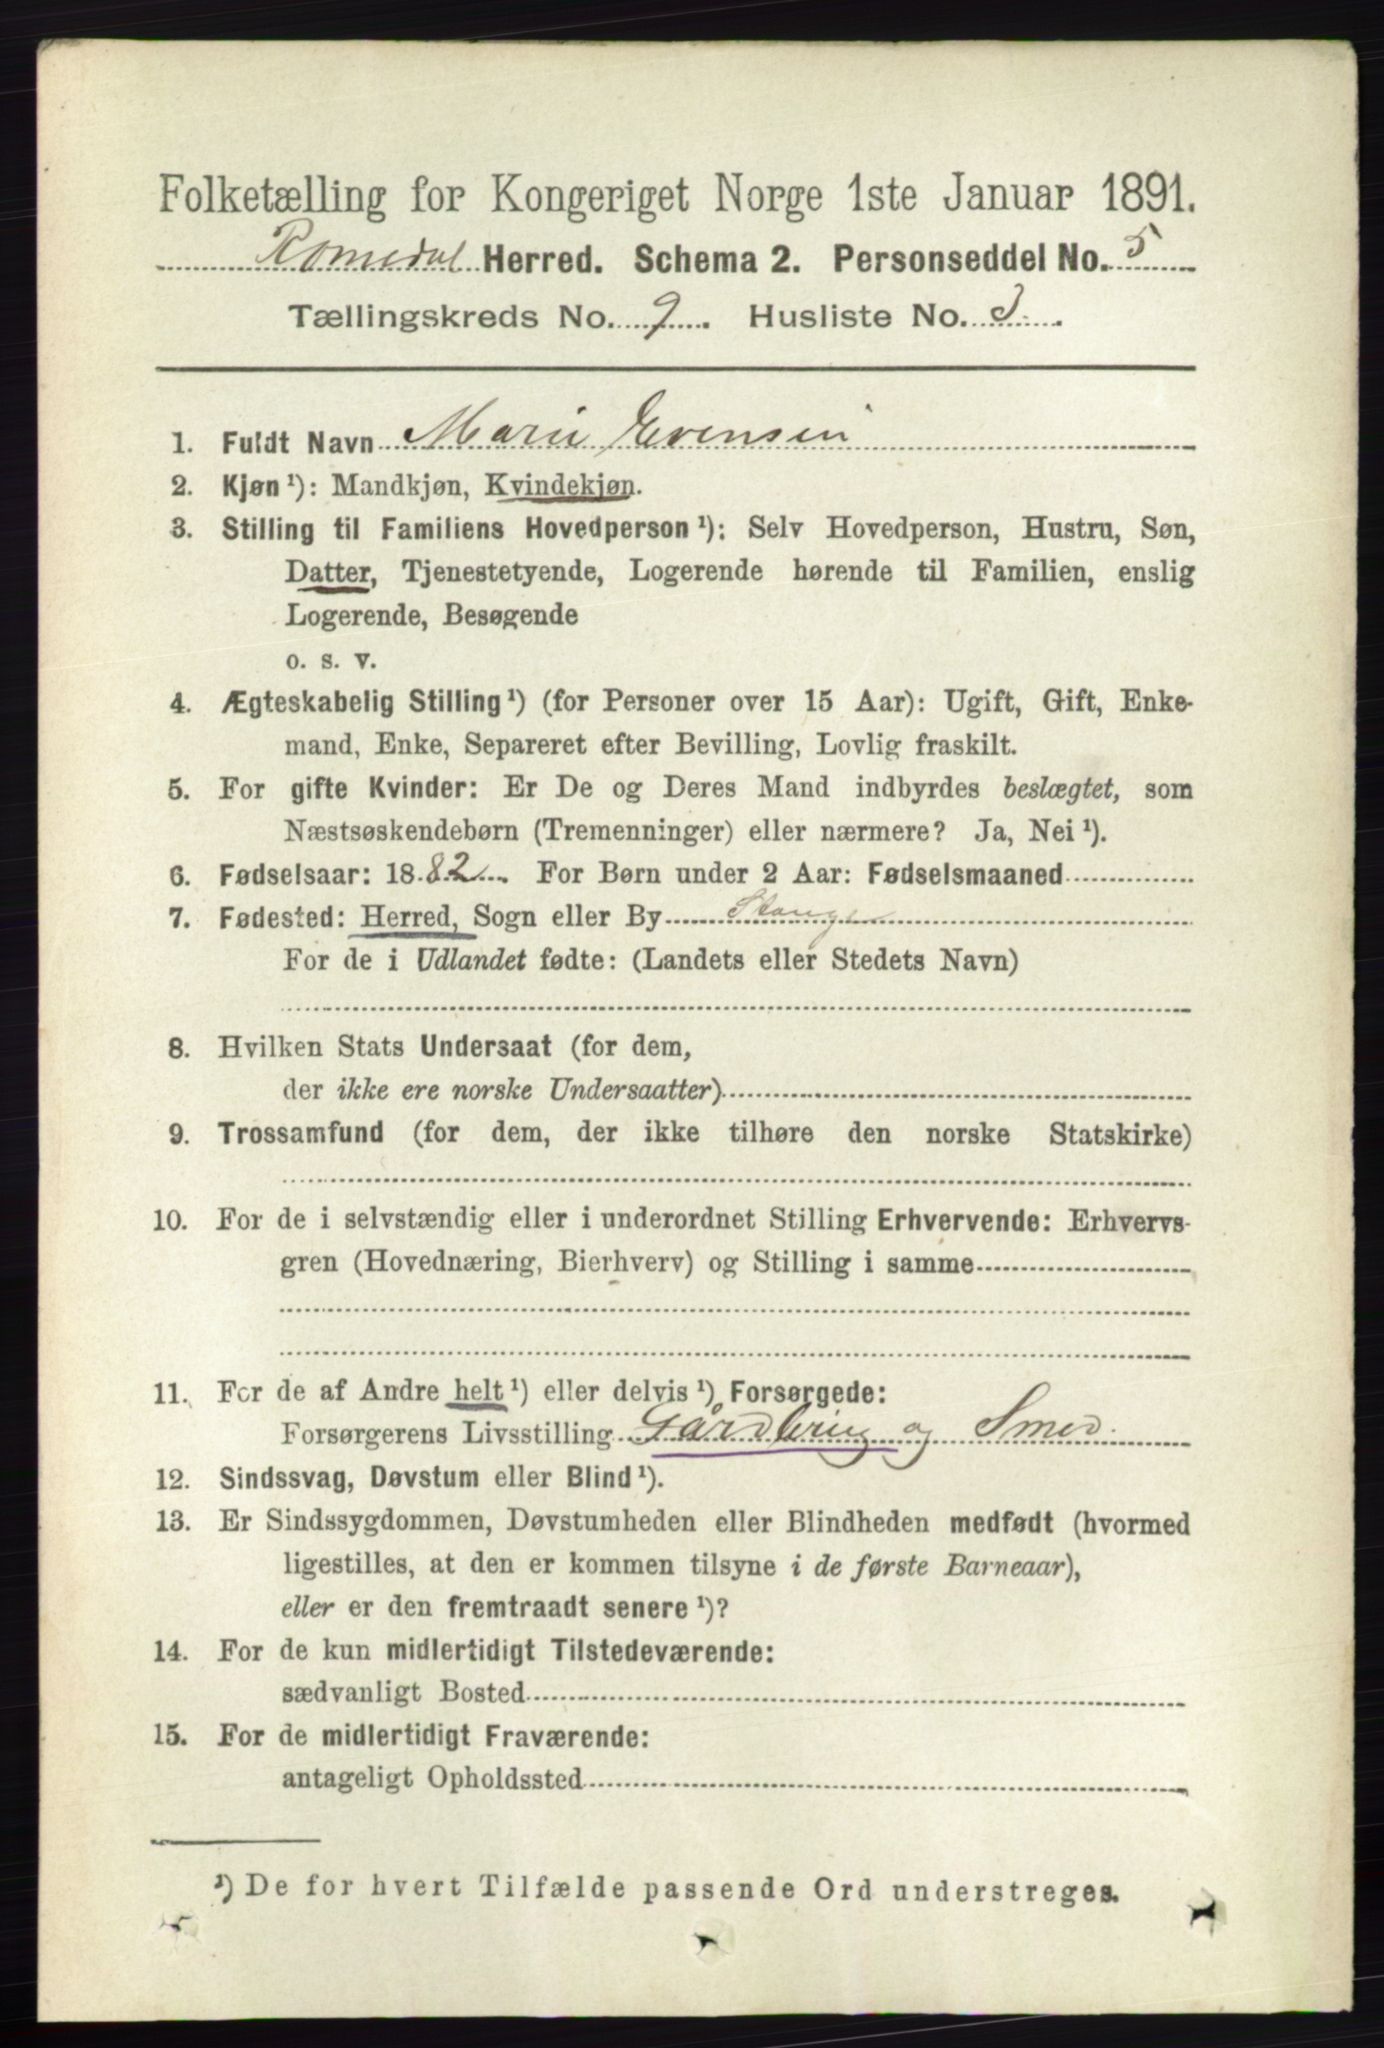 Folketælling for Kongeriget Norge 1ste Januar 1891.
Romedal Herred. Schema 2. Personseddel No. 5
Tællingskreds No. 9. Husliste No. 3.
1. Fuldt Navn Marie Evensen
2. Kjøn ¹): Mandkjøn, Kvindekjøn.
3. Stilling til Familiens Hovedperson ¹): Selv Hovedperson, Hustru, Søn,
Datter, Tjenestetyende, Logerende hørende til Familien, enslig
Logerende, Besøgende
o. s. v.
4. Ægteskabelig Stilling ¹) (for Personer over 15 Aar): Ugift, Gift, Enke-
mand, Enke, Separeret efter Bevilling, Lovlig fraskilt.
5. For gifte Kvinder: Er De og Deres Mand indbyrdes beslægtet, som
Næstsøskendebørn (Tremenninger) eller nærmere? Ja, Nei ¹).
6. Fødselsaar: 1882. For Børn under 2 Aar: Fødselsmaaned
7. Fødested: Herred, Sogn eller By Stange
For de i Udlandet fødte: (Landets eller Stedets Navn)
8. Hvilken Stats Undersaat (for dem,
der ikke ere norske Undersaatter)
9. Trossamfund (for dem, der ikke tilhøre den norske Statskirke)
10. For de i selvstændig eller i underordnet Stilling Erhvervende: Erhvervs-
gren (Hovednæring, Bierhverv) og Stilling i samme
11. For de af Andre helt ¹) eller delvis ¹) Forsørgede:
Forsørgerens Livsstilling Gårdbrug og Smed.
12. Sindssvag, Døvstum eller Blind ¹).
13. Er Sindssygdommen, Døvstumheden eller Blindheden medfødt (hvormed
ligestilles, at den er kommen tilsyne i de første Barneaar),
eller er den fremtraadt senere ¹)?
14. For de kun midlertidigt Tilstedeværende:
sædvanligt Bosted
15. For de midlertidigt Fraværende:
antageligt Opholdssted
¹) De for hvert Tilfælde passende Ord understreges.